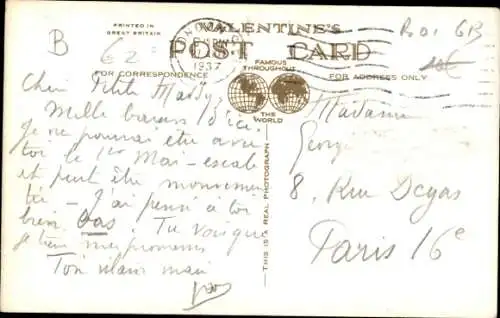 PRINTED IN
GREAT BRITAIN
VALENTINE'S
POST CARD
1937
B
62
FOR CORRESPONDENCE
FAMOUS
THROUGHOUT
THE
WORLD
FOR ADDRESS ONLY
THIS IS A REAL PHOTOGRAPH
Mille baisers d'ici.
Je ne pourrai être avec
toi le 1er Mai - escale
et peut être mouvemen
tée - J'ai pensé à toi
bien bas. Tu vois que
je tiens mes promesses
Ton
Madame
8, Rue Degas
Paris 16e